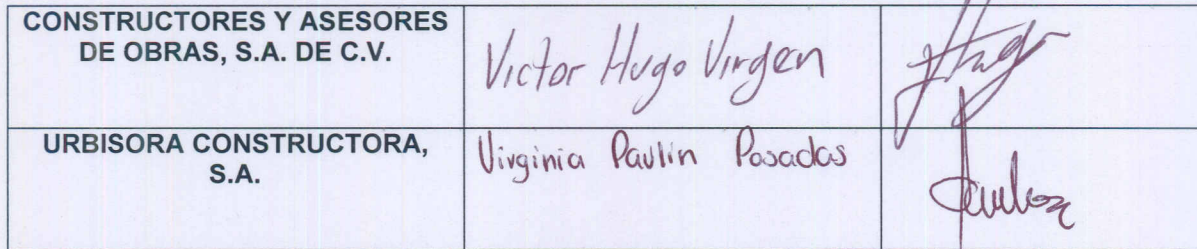 CONSTRUCTORES Y ASESORES
DE OBRAS, S.A. DE C.V.
Victor Hugo Virgen
URBISORA CONSTRUCTORA,
S.A.
Virginia Paulin Posadas